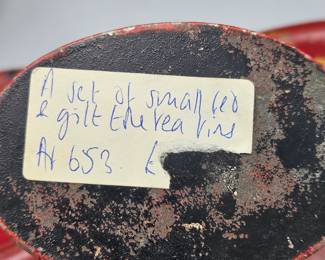 A set of small red
& gilt tole tea tins
At 653. £